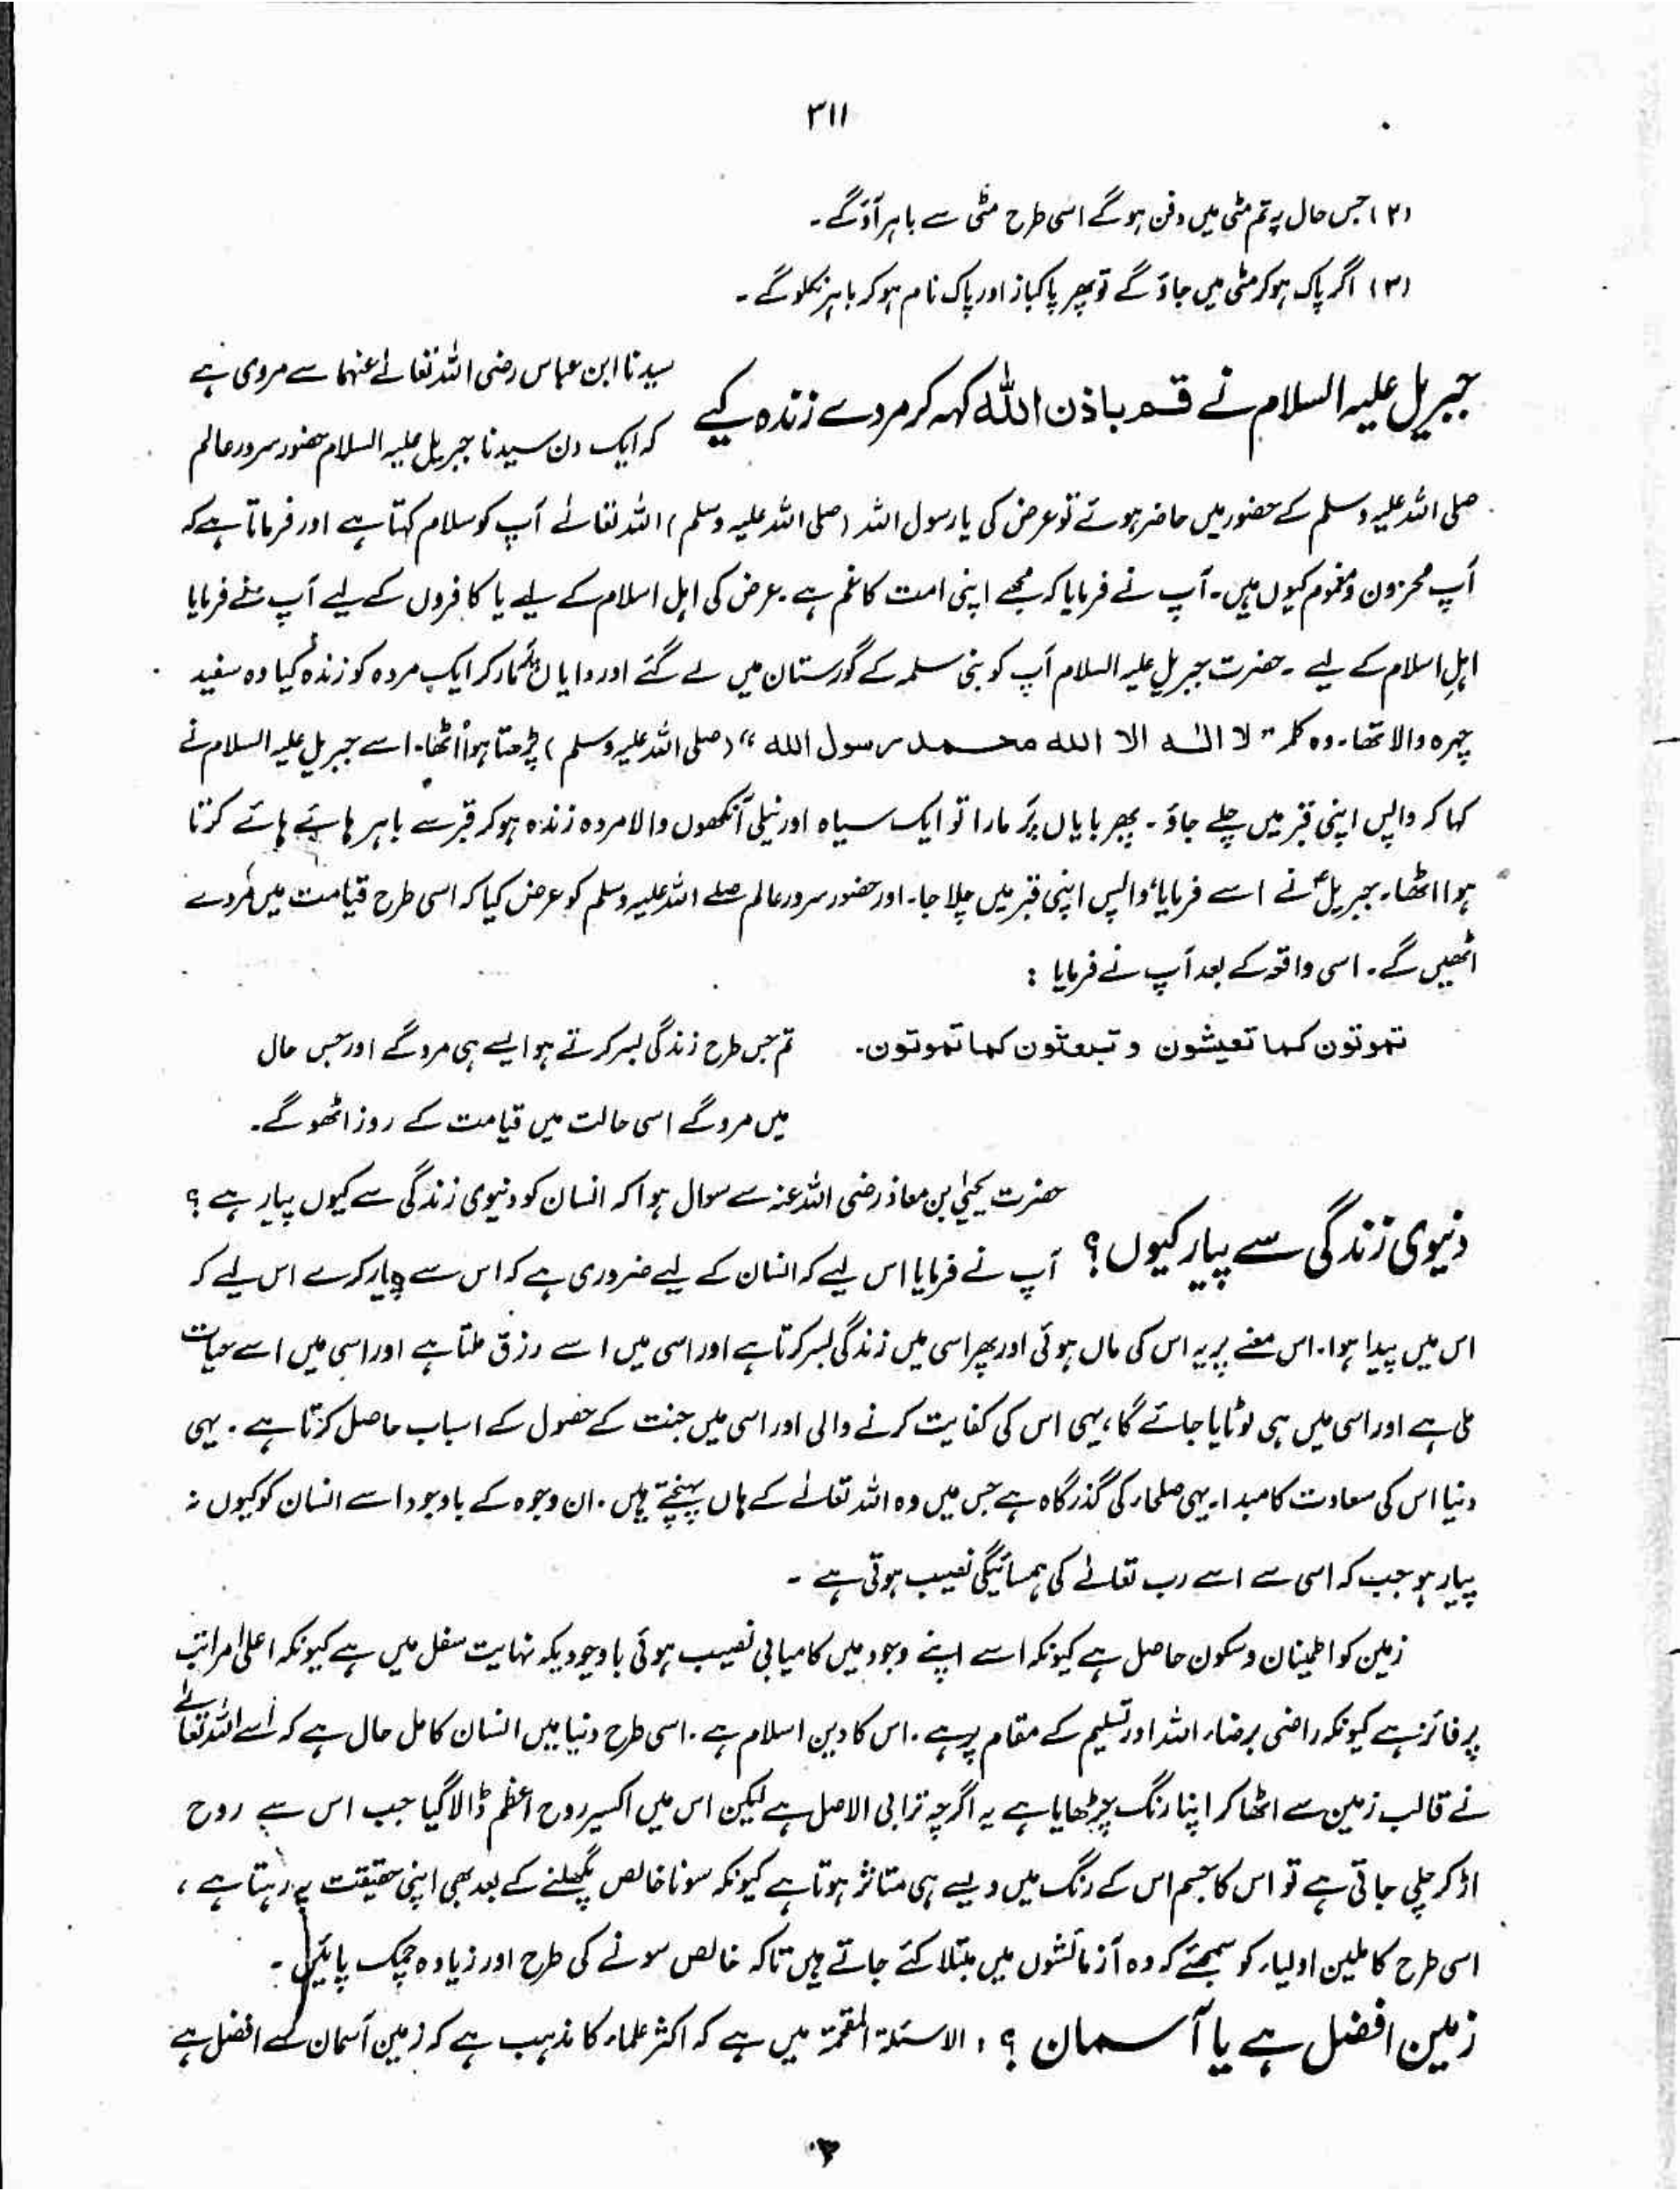 ۳۱۱
(۲) جس حال پہ تم مٹی میں دفن ہو گے اسی طرح مٹی سے باہر آؤ گے۔
(۳) اگر پاک ہو کر مٹی میں جاؤ گے تو پھر پاکباز اور پاک نام ہو کر باہر نکلو گے۔
جبریل علیہ السلام نے قم باذن اللہ کہہ کر مردے زندہ کیے
سیدنا ابن عباس رضی اللہ تعالےٰ عنہما سے مروی ہے
کہ ایک دن سیدنا جبریل علیہ السلام حضور سرور عالم
صلی اللہ علیہ وسلم کے حضور میں حاضر ہوئے تو عرض کی یا رسول اللہ (صلی اللہ علیہ وسلم) اللہ تعالےٰ آپ کو سلام کہتا ہے اور فرماتا ہے کہ
آپ محزون و مغموم کیوں ہیں۔ آپ نے فرمایا کہ مجھے اپنی امت کا غم ہے۔ عرض کی اہل اسلام کے لیے یا کافروں کے لیے آپ نے فرمایا
اہلِ اسلام کے لیے۔ حضرت جبریل علیہ السلام آپ کو بنی سلمہ کے گورستان میں لے گئے اور دایاں پَر مار کر ایک مردہ کو زندہ کیا وہ سفید
چہرہ والا تھا۔ وہ کلمہ "لا الٰہ الا اللہ محمد رسول اللہ" (صلی اللہ علیہ وسلم) پڑھتا ہوا اُٹھا۔ اسے جبریل علیہ السلام نے
کہا کہ واپس اپنی قبر میں چلے جاؤ۔ پھر بایاں پَر مارا تو ایک سیاہ اور نیلی آنکھوں والا مردہ زندہ ہو کر قبر سے باہر ہائے ہائے کرتا
ہوا اٹھا۔ جبریلؑ نے اسے فرمایا واپس اپنی قبر میں چلا جا۔ اور حضور سرور عالم صلے اللہ علیہ وسلم کو عرض کیا کہ اسی طرح قیامت میں مُردے
اٹھیں گے۔ اسی واقعہ کے بعد آپ نے فرمایا :
تموتون کما تعیشون و تبعثون کما تموتون۔ تم جس طرح زندگی بسر کرتے ہو ایسے ہی مرو گے اور جس حال
میں مرو گے اسی حالت میں قیامت کے روز اٹھو گے۔
دنیوی زندگی سے پیار کیوں؟
حضرت یحییٰ بن معاذ رضی اللہ عنہ سے سوال ہوا کہ انسان کو دنیوی زندگی سے کیوں پیار ہے ؟
آپ نے فرمایا اس لیے کہ انسان کے لیے ضروری ہے کہ اس سے پیار کرے اس لیے کہ
اس میں پیدا ہوا۔ اس معنے پر یہ اس کی ماں ہوئی اور پھر اسی میں زندگی بسر کرتا ہے اور اسی میں اسے رزق ملتا ہے اور اسی میں اسے حیات
ملی ہے اور اسی میں ہی لوٹایا جائے گا، یہی اس کی کفایت کرنے والی اور اسی میں جنت کے حصول کے اسباب حاصل کرتا ہے۔ یہی
دنیا اس کی سعادت کا مبدا۔ یہی صلحاء کی گذرگاہ ہے جس میں وہ اللہ تعالےٰ کے ہاں پہنچتے ہیں۔ ان وجوہ کے باوجود اسے انسان کو کیوں نہ
پیار ہو جب کہ اسی سے اسے رب تعالےٰ کی ہمسائیگی نصیب ہوتی ہے۔
زمین کو اطمینان و سکون حاصل ہے کیونکہ اسے اپنے وجود میں کامیابی نصیب ہوئی باوجودیکہ نہایت سفل میں ہے کیونکہ اعلیٰ مراتب
پر فائز ہے کیونکہ راضی برضاء اللہ اور تسلیم کے مقام پر ہے۔ اس کا دین اسلام ہے۔ اسی طرح دنیا میں انسان کامل حال ہے کہ اُسے اللہ تعالےٰ
نے قالب زمین سے اٹھا کر اپنا رنگ چڑھایا ہے یہ اگرچہ ترابی الاصل ہے لیکن اس میں اکسیر روح اعظم ڈالا گیا جب اس سے روح
اڑ کر چلی جاتی ہے تو اس کا جسم اس کے رنگ میں ویسے ہی متاثر ہوتا ہے کیونکہ سونا خالص پگھلنے کے بعد بھی اپنی حقیقت پہ رہتا ہے،
اسی طرح کاملین اولیاء کو سمجھئے کہ وہ آزمائشوں میں مبتلا کئے جاتے ہیں تاکہ خالص سونے کی طرح اور زیادہ چمک پائیں۔
زمین افضل ہے یا آسمان ؟ : الاسئلۃ المقحمۃ میں ہے کہ اکثر علماء کا مذہب ہے کہ زمین آسمان سے افضل ہے